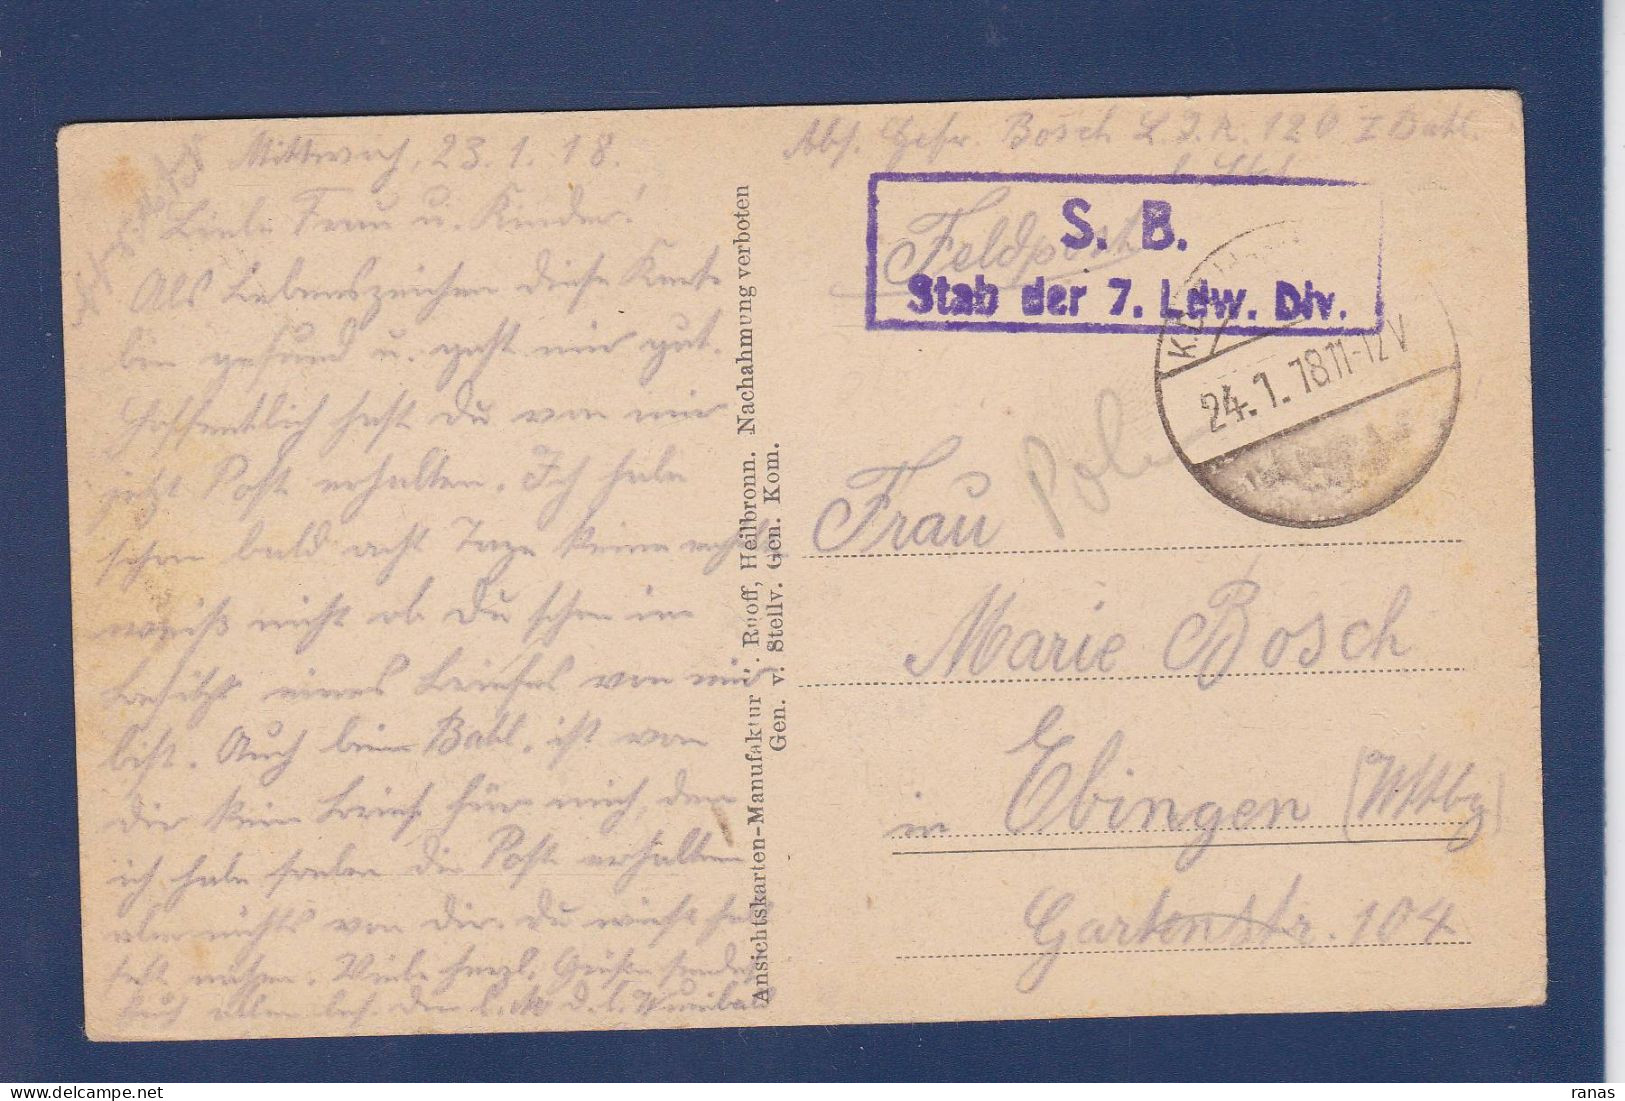 Mittwoch, 23.1.18.
Liebe Frau u. Kinder!
Als Lebenszeichen diese Karte
bin gesund u. geht mir gut.
Hoffentlich hast Du von mir
jetzt Post erhalten. Ich habe
schon bald acht Tage keine mehr
weiß nicht ob Du schon im
Besitze eines Briefes von mir
bist. Auch beim Batl. ist von
dir kein Brief für mich, denn
ich habe soeben die Post erhalten
aber nichts von dir. Du wirst
Viele herzl. Grüße sendet
Euch allen
Ansichtskarten-Manufaktur Ruoff, Heilbronn. Nachahmung verboten
Gen. v. Stellv. Gen. Kom.
Abs. Gefr. Bosch L.I.R. 120 I Batl.
Feldpost
S. B.
Stab der 7. Ldw. Div.
24.1.18 11-12 V
Frau
Marie Bosch
in Ebingen (Wttbg)
Gartenstr. 104
ranas